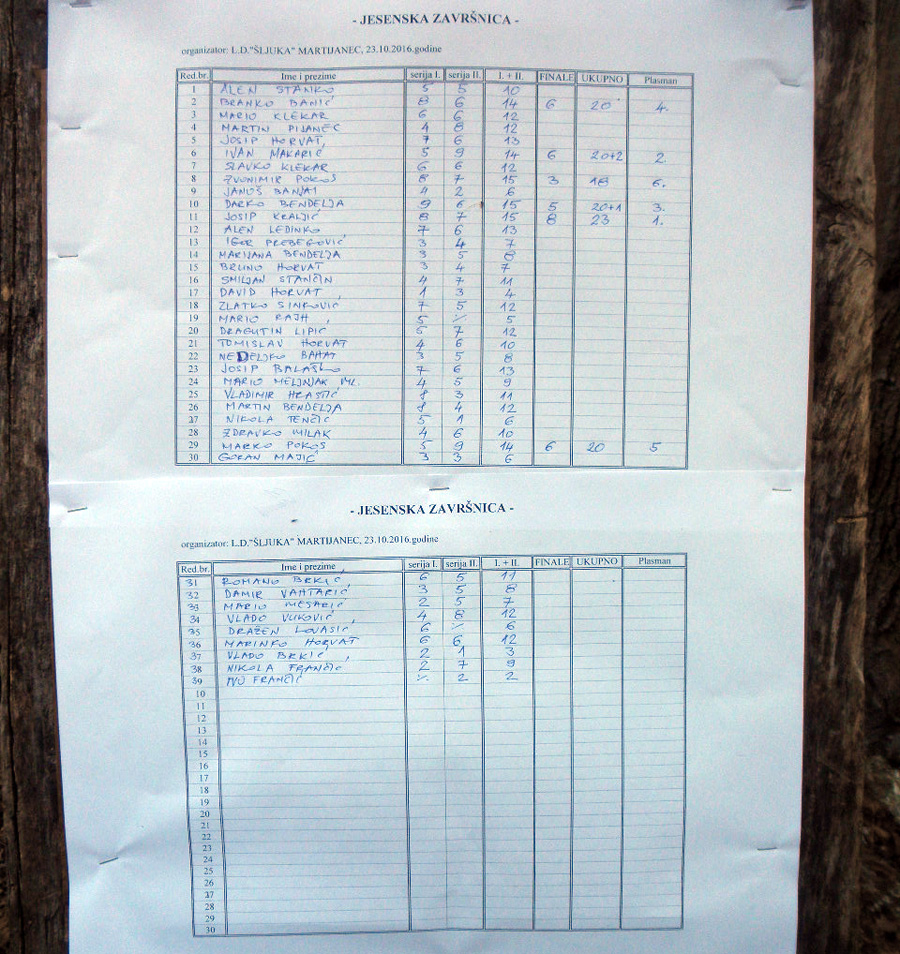 - JESENSKA ZAVRŠNICA -
organizator: L.D."ŠLJUKA" MARTIJANEC, 23.10.2016.godine
Red.br. Ime i prezime serija I. serija II. I. + II. FINALE UKUPNO Plasman
1 ALEN STANKO 5 5 10
2 BRANKO BANIĆ 8 6 14 6 20 4.
3 MARIO KLEKAR 6 6 12
4 MARTIN PIJANEC 4 8 12
5 JOSIP HORVAT 7 6 13
6 IVAN MAKARIĆ 5 9 14 6 20+2 2.
7 SLAVKO KLEKAR 6 6 12
8 ZVONIMIR POKOS 8 7 15 3 18 6.
9 JANOŠ BANJAI 4 2 6
10 DARKO BENDELJA 9 6 15 5 20+1 3.
11 JOSIP KRALJIĆ 8 7 15 8 23 1.
12 ALEN LEDINKO 7 6 13
13 IGOR PREBEGOVIĆ 3 4 7
14 MARIJANA BENDELJA 3 5 8
15 BRUNO HORVAT 3 4 7
16 SMILJAN STANČIN 4 7 11
17 DAVID HORVAT 1 3 4
18 ZLATKO SINKOVIĆ 7 5 12
19 MARIO RAJH 5 ⁒ 5
20 DRAGUTIN LIPIĆ 5 7 12
21 TOMISLAV HORVAT 4 6 10
22 NEDELJKO BAHAT 3 5 8
23 JOSIP BALAŠKO 7 6 13
24 MARIO MELJNJAK ML. 4 5 9
25 VLADIMIR HRASTIĆ 8 3 11
26 MARTIN BENDELJA 8 4 12
27 NIKOLA TENČIĆ 5 1 6
28 ZDRAVKO MILAK 4 6 10
29 MARKO POKOS 5 9 14 6 20 5
30 GORAN MAJIĆ 3 3 6
- JESENSKA ZAVRŠNICA -
organizator: L.D."ŠLJUKA" MARTIJANEC, 23.10.2016.godine
Red.br. Ime i prezime serija I. serija II. I. + II. FINALE UKUPNO Plasman
31 ROMANO BRKIĆ 6 5 11
32 DAMIR VAHTARIĆ 3 5 8
33 MARIO MESARIĆ 2 5 7
34 VLADO VUKOVIĆ 4 8 12
35 DRAŽEN LOVASIĆ 6 ⁒ 6
36 MARINKO HORVAT 6 6 12
37 VLADO BRKIĆ 2 1 3
38 NIKOLA FRANČIĆ 2 7 9
39 IVO FRANČIĆ ⁒ 2 2
10
11
12
13
14
15
16
17
18
19
20
21
22
23
24
25
26
27
28
29
30